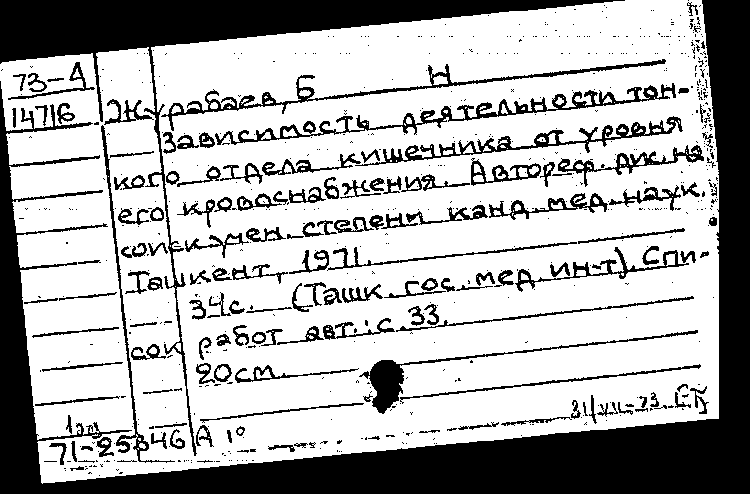 73-А
14716 Журабаев, Б Н
Зависимость деятельности тон-
кого отдела кишечника от уровня
его кровоснабжения. Автореф. дис. на
соиск. учен. степени канд. мед. наук.
Ташкент, 1971.
34с. (Ташк. гос. мед. ин-т). Спи-
сок работ авт.: с. 33.
20см.
1 экз
71-25846 А 1° 31/VII-73